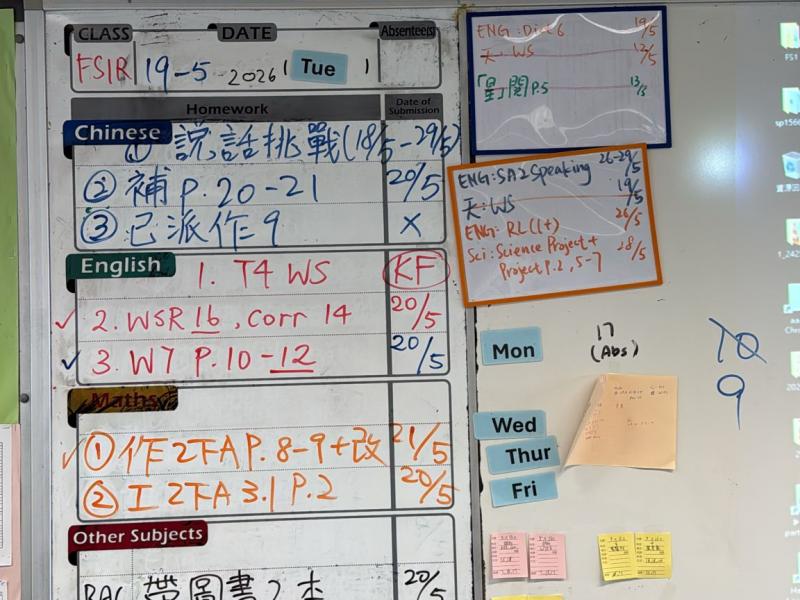 CLASS DATE Absentee(s)
FS1R 19-5 2026 ( Tue )
Homework Date of Submission
Chinese
① 說話挑戰(18/5-29/5)
② 補 P.20-21 20/5
③ 已派作9 X
English
1. T4 WS KF
✓ 2. WSR 16, Corr 14 20/5
✓ 3. W7 P.10-12 20/5
Maths
✓ ① 作2下A P.8-9+改 21/5
② 工2下A 3.1 P.2 20/5
Other Subjects
帶圖書2本 20/5
ENG: Dict 6 19/5
天: WS 12/5
「星」閱 P.5 13/5
ENG: SA2 Speaking 26-29/5
天: WS 19/5
ENG: RL (1+) 26/5
Sci: Science Project + 28/5
Project P.2, 5-7
Mon
17
(Abs)
10
9
Wed
Thur
Fri
FS1